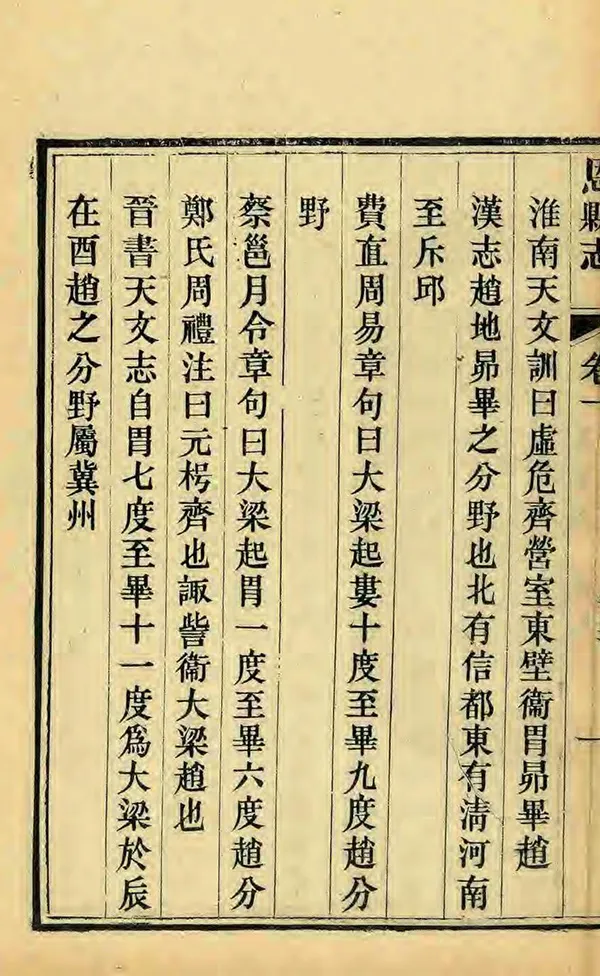 恩縣志
卷一
一
淮南天文訓曰虛危齊營室東壁衞胃昴畢趙
漢志趙地昴畢之分野也北有信都東有淸河南
至斥邱
費直周易章句曰大梁起婁十度至畢九度趙分
野
蔡邕月令章句曰大梁起胃一度至畢六度趙分
鄭氏周禮注曰元枵齊也諏訾衞大梁趙也
晉書天文志自胃七度至畢十一度爲大梁於辰
在酉趙之分野屬冀州